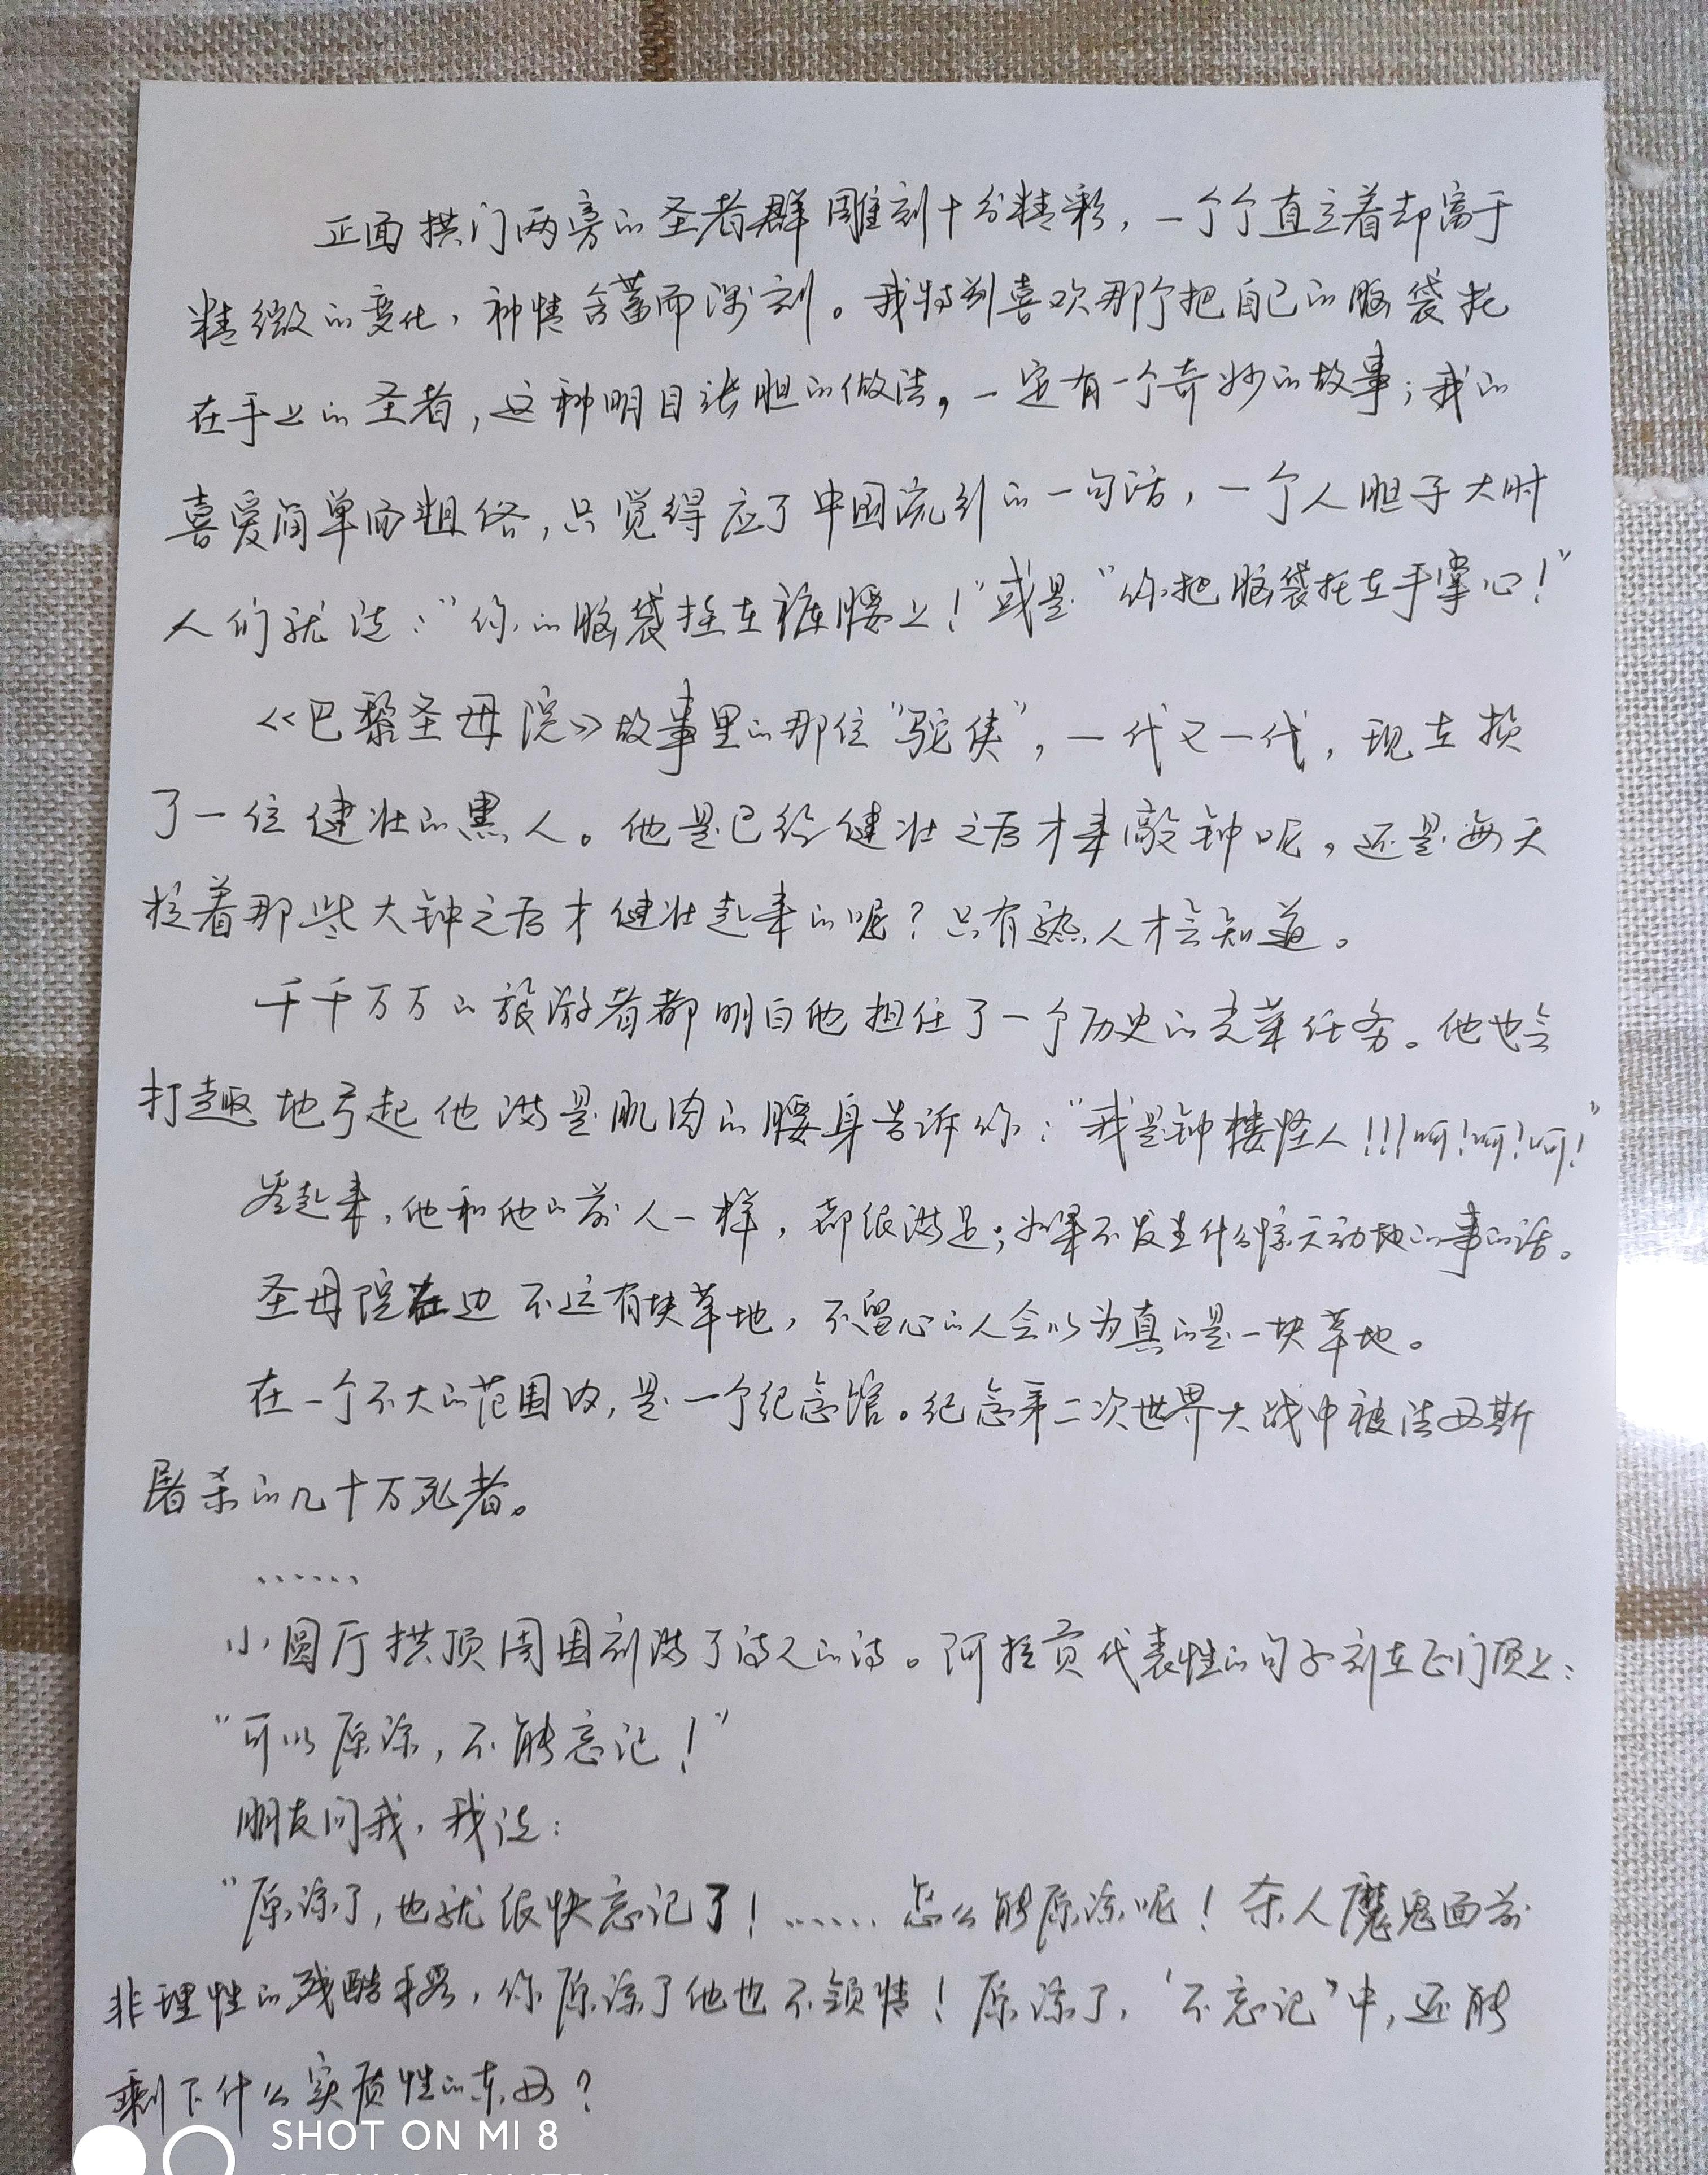 正面拱门两旁的圣者群雕刻十分精彩，一个个直立着却富于
精微的变化，神情含蓄而深刻。我特别喜欢那个把自己的脑袋托
在手上的圣者，这种明目张胆的做法，一定有一个奇妙的故事；我的
喜爱简单而粗俗，只觉得应了中国流行的一句话，一个人胆子大时
人们就说：“你的脑袋拴在裤腰上！”或是“你把脑袋托在手掌心！”
《巴黎圣母院》故事里的那位“驼侠”，一代又一代，现在换
了一位健壮的黑人。他是已经健壮之后才来敲钟呢，还是每天
拉着那些大钟之后才健壮起来的呢？只有熟人才会知道。
千千万万的旅游者都明白他担任了一个历史的光荣任务。他也会
打趣地弓起他满是肌肉的腰身告诉你：“我是钟楼怪人！！！呵！呵！呵！”
看起来，他和他的前人一样，都很满足；如果不发生什么惊天动地的事的话。
圣母院左边不远有块草地，不留心的人会以为真的是一块草地。
在一个不大的范围内，是一个纪念馆。纪念第二次世界大战中被法西斯
屠杀的几十万死者。
……
小圆厅拱顶周围刻满了诗人的诗。阿拉贡代表性的句子刻在正门顶上：
“可以原谅，不能忘记！”
朋友问我，我说：
“原谅了，也就很快忘记了！……怎么能原谅呢！杀人魔鬼面前
非理性的残酷手段，你原谅了他也不领情！原谅了，‘不忘记’中，还能
剩下什么实质性的东西？
SHOT ON MI 8